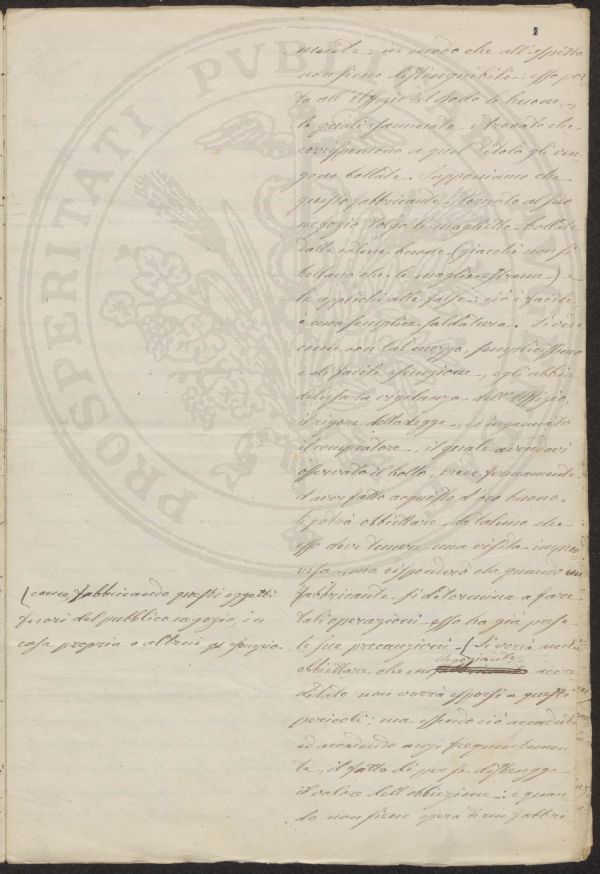 2
in modo che all'aspetto
non sieno distinguibili: esso por
ta all'Uffizio del Bollo le buone,
le quali esaminate, e trovato che
corrispondono a quel titolo gli ven
gono bollate. Supponiamo che
questo fabbricante, tornato al suo
negozio, tolga le magliette bollate
dalle catene buone (giacchè non si
bollano che le maglie estreme) e
le applichi alle false: ciò è facile,
è una semplice saldatura. Si vede
come con tal mezzo, semplicissimo
e di facile esecuzione, egli abbia
delusa la vigilanza dell'Uffizio,
il rigore della Legge, e ingannato
il compratore, il quale avendovi
osservato il bollo, crede fermamente
d'aver fatto acquisto d'oro buono.
Si potrà obbiettare da taluno che
esso deve temere una visita improv
visa, ma risponderò che quando un
fabbricante si determina a fare
tali operazioni esso ha già prese
le sue precauzioni. (Si vorrà anche
negoziante
obbiettare, che un accre
ditato non vorrà esporsi a questi
pericoli; ma essendo ciò accaduto
ed accadendo anzi frequentemen
te, il fatto di per se distrugge
il valore dell'obbiezione: e quan
do non sieno opera di un fabbri
(come, fabbricando questi oggetti
fuori del pubblico negozio, in
casa propria o altrui
PROSPERITATI PVBLICAE